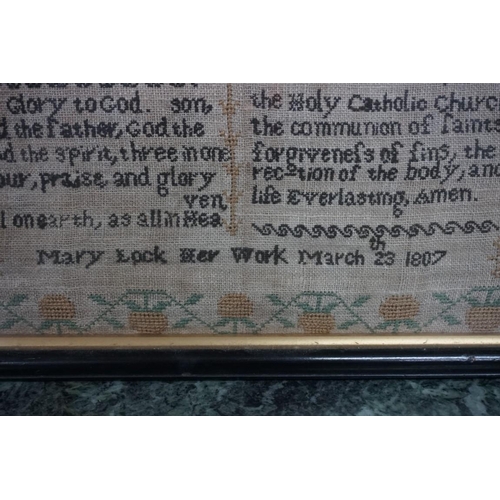 Glory to God. son,
the father, God the
the spirit, three in one
our, praise, and glory
ven,
l on earth, as all in Hea
the Holy Catholic Churc
the communion of saints
forgivenefs of sins, the
life Everlasting, Amen.
Mary Lock Her Work March 23th 1807